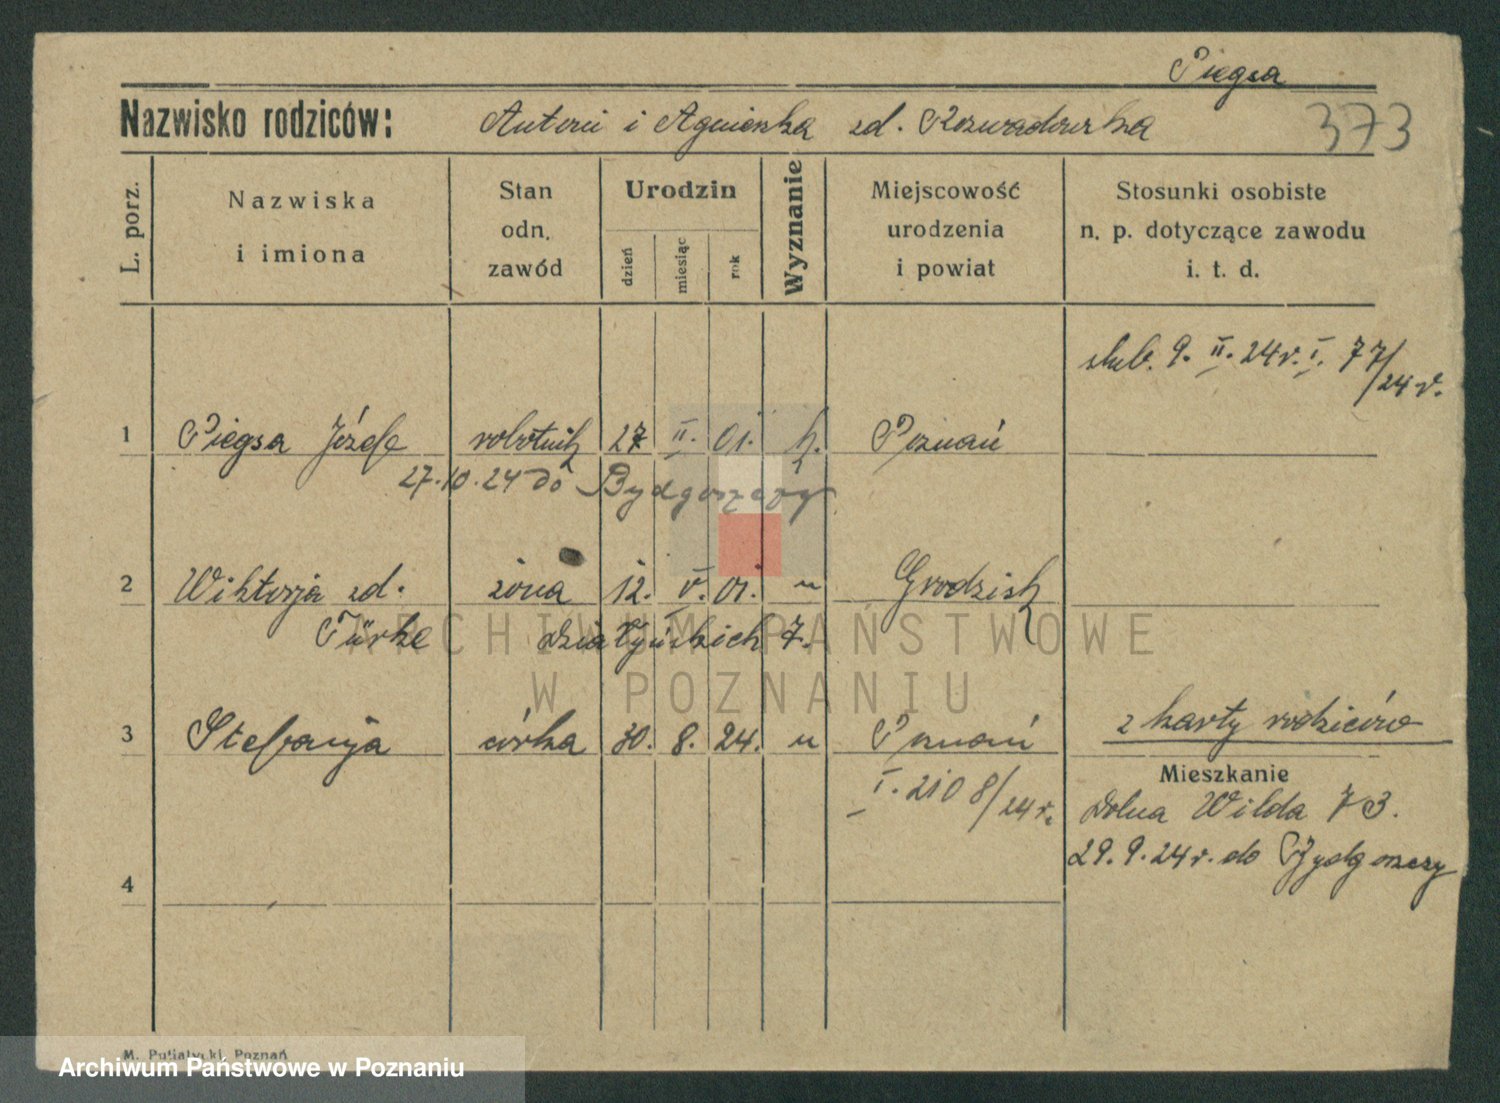 Piegsa
Nazwisko rodziców: Antoni i Agnieszka zd. Rozwadowska 373
L. porz.
Nazwiska i imiona
Stan odn. zawód
Urodzin
dzień miesiąc rok
Wyznanie
Miejscowość urodzenia i powiat
Stosunki osobiste n. p. dotyczące zawodu i. t. d.
ślub. 9. II. 24 r. I. 77/24 r.
1 Piegsa Józef robotnik 27 II. 01. k. Poznań
27.10.24 do Bydgoszczy
2 Wiktorja zd. żona 12. V. 01. " Grodzisk
Türke Działyńskich 7.
3 Stefanja córka 30. 8. 24. " Poznań z karty rodziców
I. 2108/24 r.
Mieszkanie
Dolna Wilda 73.
29.9.24 r. do Bydgoszczy
4
ARCHIWUM PAŃSTWOWE
W POZNANIU
M. Putiatycki, Poznań
Archiwum Państwowe w Poznaniu